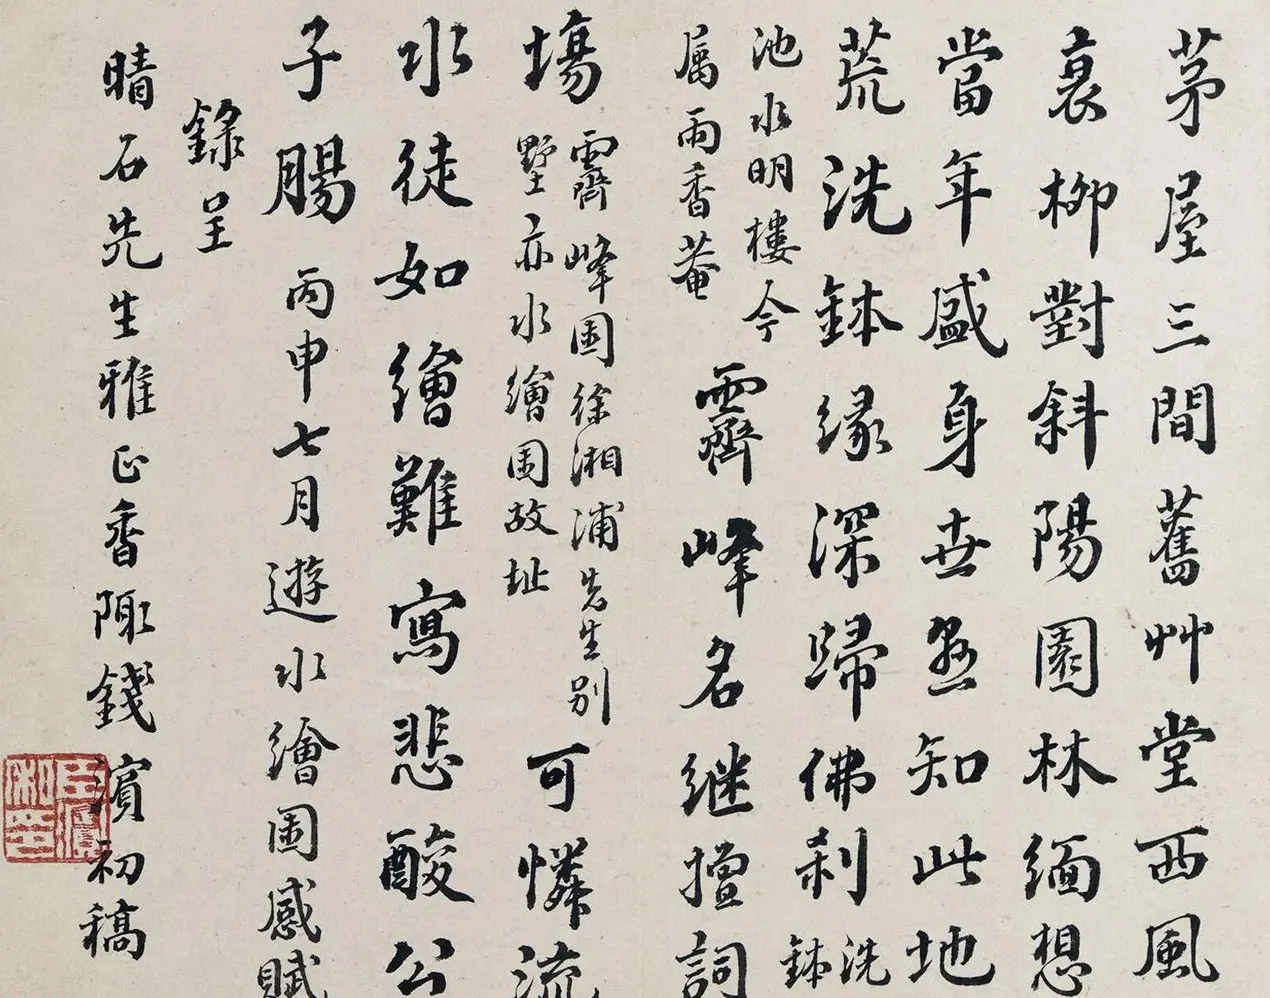 茅屋三間舊艸堂西風
衰柳對斜陽園林緬想
當年盛身世焉知此地
荒洗鉢緣深歸佛刹洗鉢
池水明樓今
属雨香菴
霽峰名継擅詞
場
霽峰園徐湘浦先生別
墅亦水繪園故址
可憐流
水徒如繪難寫悲酸公
子腸丙申七月遊水繪園感賦
錄呈
晴石先生雅正香陬錢濱初稿
臣濱
私印